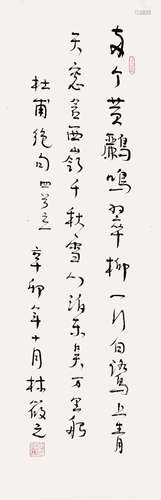 两个黄鸝鳴翠柳一行白鷺上青
天窓含西嶺千秋雪门泊东吴万里船
杜甫绝句四首之 辛卯年十月林筱之